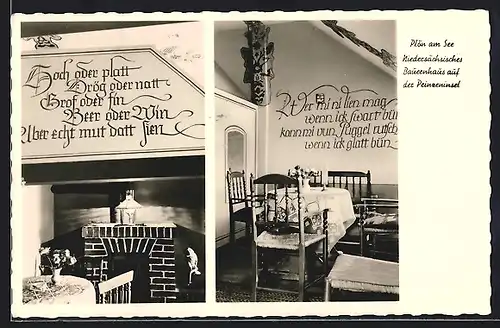 Hoch oder platt
Drög oder natt
Grof oder fin
Beer oder Win
Aber echt mutt datt sien
Wer mi ni lien mag
wenn ick swart bün
kann mi vun Puggel rutsch
wenn ick glatt bün
Plön am See
Niedersächsisches
Bauernhaus auf
der Prinzeninsel